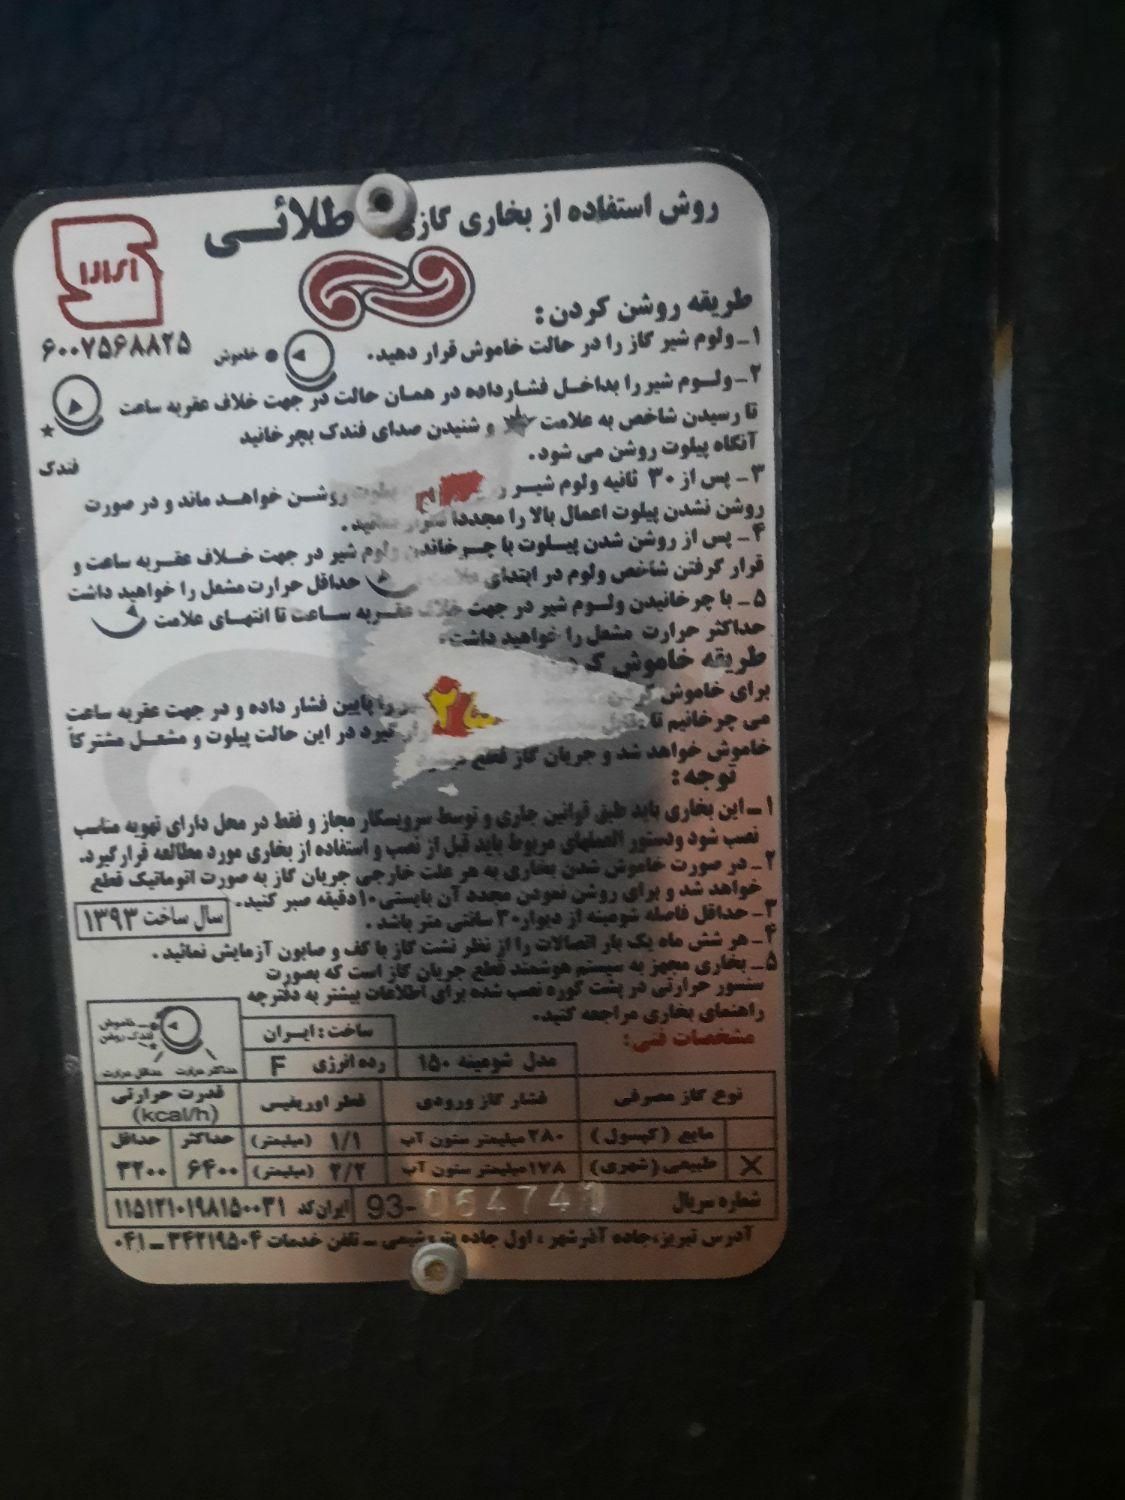 روش استفاده از بخاری گازی طلائـــی
۶۰۰۷۵۶۸۸۲۵
طریقه روشن کردن:
۱ـ ولوم شیر گاز را در حالت خاموش قرار دهید. ● خاموش
۲ـ ولـوم شیر را بداخـل فشارداده در همـان حالت در جهت خلاف عقربه ساعت
تا رسیدن شاخص به علامت و شنیدن صدای فندک بچرخانید
آنگاه پیلوت روشن می شود.
فندک
۳ـ پس از ۳۰ ثانیه ولوم شیـر پیلوت روشـن خواهـد ماند و در صورت
روشن نشدن پیلوت اعمال بالا را مجددا تکرار نمائید.
۴ـ پس از روشن شدن پیـلوت با چـرخاندن ولوم شیر در جهت خـلاف عقـربه ساعت و
قرار گرفتن شاخص ولوم در ابتدای علامت حداقل حرارت مشعل را خواهید داشت
۵ـ با چرخانیدن ولـوم شیر در جهت خلاف عقـربه سـاعت تا انتهـای علامت
حداکثر حرارت مشعل را خواهید داشت.
طریقه خاموش کردن
برای خاموش کردن را پایین فشار داده و در جهت عقربه ساعت
می چرخانیم تا گیرد در این حالت پیلوت و مشعـل مشترکاً
خاموش خواهد شد و جریان گاز قطع میشود
توجه:
۱ـ این بخاری باید طبق قوانین جاری و توسط سرویسکار مجاز و فقط در محل دارای تهویه مناسب
نصب شود ودستور العملهای مربوط باید قبل از نصب و استفاده از بخاری مورد مطالعه قرارگیرد.
۲ـ در صورت خاموش شدن بخاری به هر علت خارجی جریان گاز به صورت اتوماتیک قطع
خواهد شد و برای روشن نمودن مجدد آن بایستی ۱۰ دقیقه صبر کنید.
۳ـ حداقل فاصله شومینه از دیوار ۳۰ سانتی متر باشد.
سال ساخت ۱۳۹۳
۴ـ هر شش ماه یک بار اتصالات را از نظر نشت گاز با کف و صابون آزمایش نمائید.
۵ـ بخاری مجهز به سیستم هوشمند قطع جریان گاز است که بصورت
سنسور حرارتی در پشت کوره نصب شده برای اطلاعات بیشتر به دفترچه
راهنمای بخاری مراجعه کنید.
مشخصات فنی:
ساخت: ایـران
خاموش
فندک روشن
حداکثر حرارت حداقل حرارت
مدل شومینه ۱۵۰ رده انرژی F
نوع گاز مصرفی فشار گاز ورودی قطر اوریفیس قدرت حرارتی (kcal/h)
مایع (کپسول) ۲۸۰ میلیمتر ستون آب ۱/۱ (میلیمتر) حداکثر حداقل
X طبیعی (شهری) ۱۷۸ میلیمتر ستون آب ۲/۲ (میلیمتر) ۶۴۰۰ ۳۲۰۰
شماره سریال 93- ایران کد ۱۱۵۱۲۱۰۱۹۸۱۵۰۰۳۱
آدرس تبریز،جاده آذرشهر، اول جاده پتروشیمی ـ تلفن خدمات ۳۴۲۱۹۵۰۴ ـ ۰۴۱